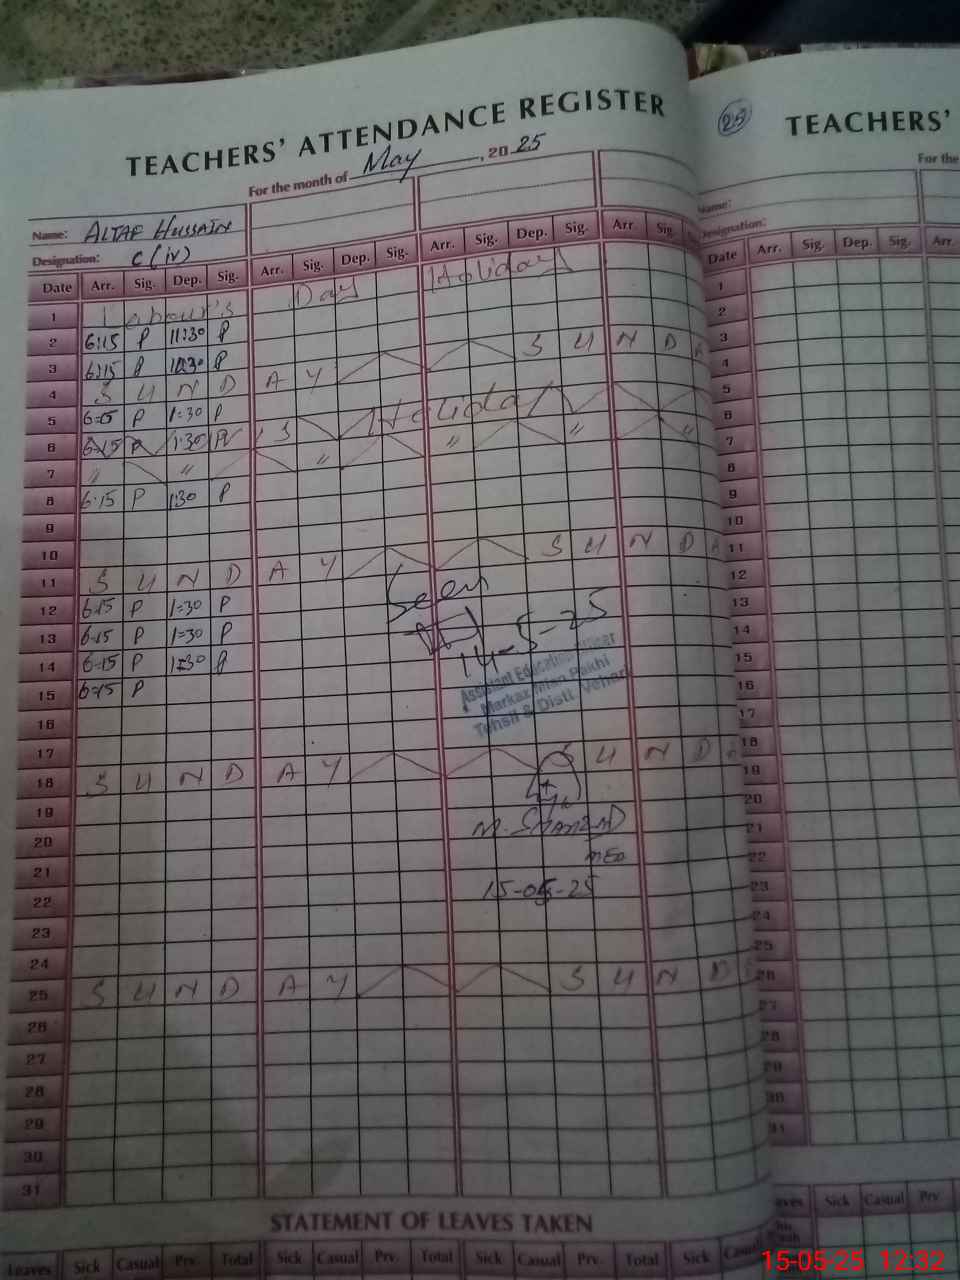 TEACHERS' ATTENDANCE REGISTER
For the month of May, 2025
Name: ALTAF HUSSAIN
Designation: C (iv)
Date Arr. Sig. Dep. Sig. Arr. Sig. Dep. Sig. Arr. Sig. Dep. Sig. Arr. Sig.
1 Labour's Day Holiday
2 6:15 P 11:30 P
3 6:15 P P SUND
4 SUNDAY
5 6:15 P 1:30 P Holiday
6 6:15 P 1:30 P
7 " " " " " "
8 6:15 P 1:30 P
9
10 SUND
11 SUNDAY
12 6:15 P 1:30 P
13 6:15 P 1:30 P
14 6:15 P 1:30 P
15 6:15 P
16
17 SUND
18 SUNDAY
19
20
21
22
23
24 SUND
25 SUNDAY
26
27
28
29
30
31
Seen
14-5-25
Assistant Education Officer
Markaz Mian Pakhi
Tehsil & Distt. Vehari
M. SHAHZAD
MEA
15-05-25
STATEMENT OF LEAVES TAKEN
Leaves Sick Casual Prv. Total Sick Casual Prv. Total Sick Casual Prv. Total Sick
25
TEACHERS'
For the
Name:
Designation:
Date Arr. Sig. Dep. Sig. Arr.
1
2
3
4
5
6
7
8
9
10
11
12
13
14
15
16
17
18
19
20
21
22
23
24
25
26
27
28
29
30
31
Sick Casual Prv.
15-05-25 12:32